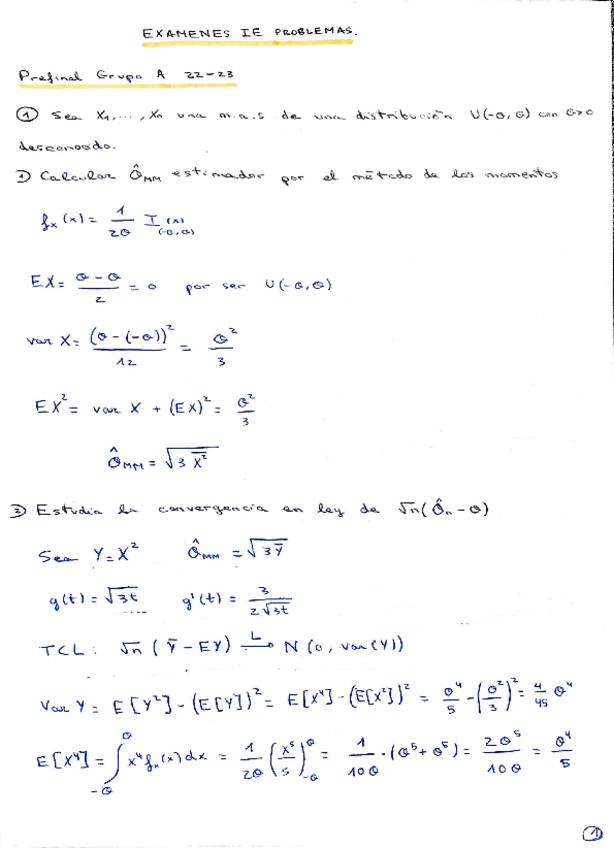 EXAMENES IE PROBLEMAS.
Prefinal Grupo A 22-23
① Sea X1,..., Xn una m.a.s de una distribución U(-θ, θ) con θ>0
desconocido.
1) Calcular θ̂MM estimador por el método de los momentos
fx(x) = 1/2θ I(-θ,θ)(x)
EX = θ-θ/2 = 0 por ser U(-θ,θ)
var X = (θ-(-θ))²/12 = θ²/3
EX² = var X + (EX)² = θ²/3
θ̂MM = √3X̄²
2) Estudia la convergencia en ley de √n(θ̂n - θ)
Sea Y=X² θ̂MM = √3Ȳ
g(t) = √3t g'(t) = 3/2√3t
TCL: √n (Ȳ - EY) →L N(0, var(Y))
Var Y = E[Y²] - (E[Y])² = E[X⁴] - (E[X²])² = θ⁴/5 - (θ²/3)² = 4/45 θ⁴
E[X⁴] = ∫-θ^θ x⁴ fx(x) dx = 1/2θ (x⁵/5)-θ^θ = 1/10θ · (θ⁵+θ⁵) = 2θ⁵/10θ = θ⁴/5
①